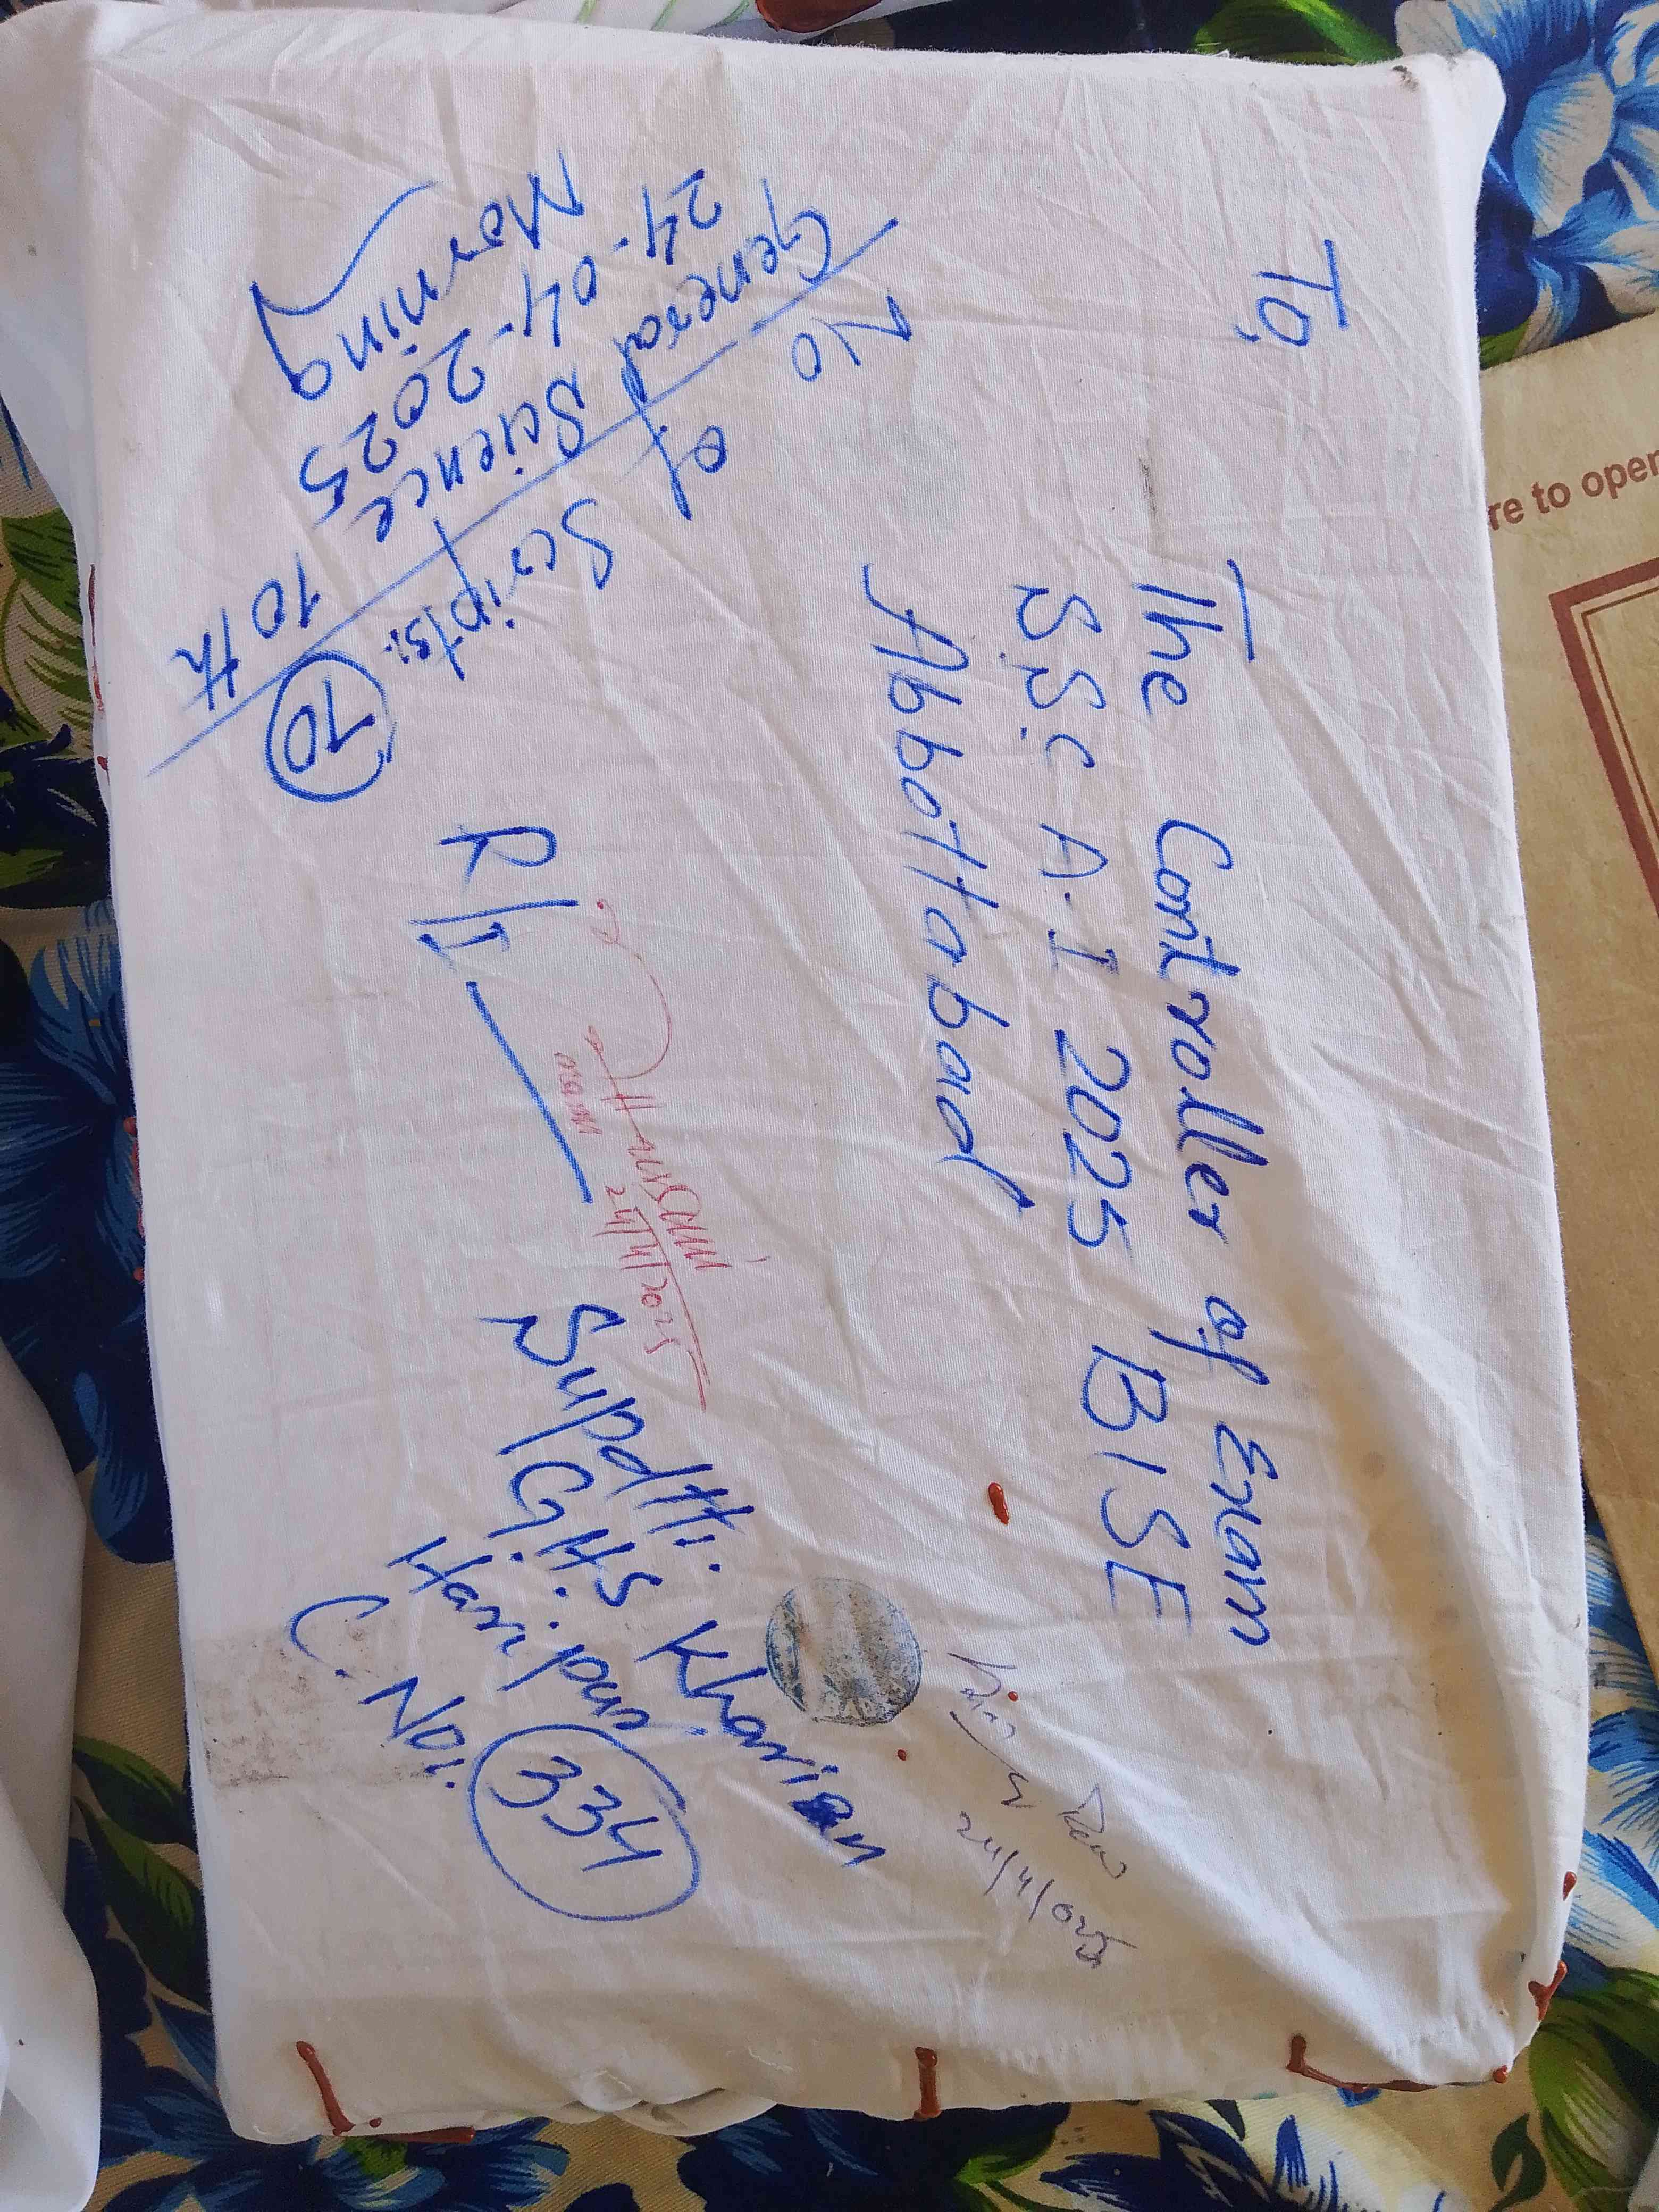 To,
The Controller of Exam
S.S.C A.I 2025 BISE
Abbottabad
No of Scripts: 70
General Science 10th
24-04-2025
Morning
R/I
24/4/2025
Supdtt: Kharian
G.H.S
Haripur
C.No: 334
24/4/025
re to open